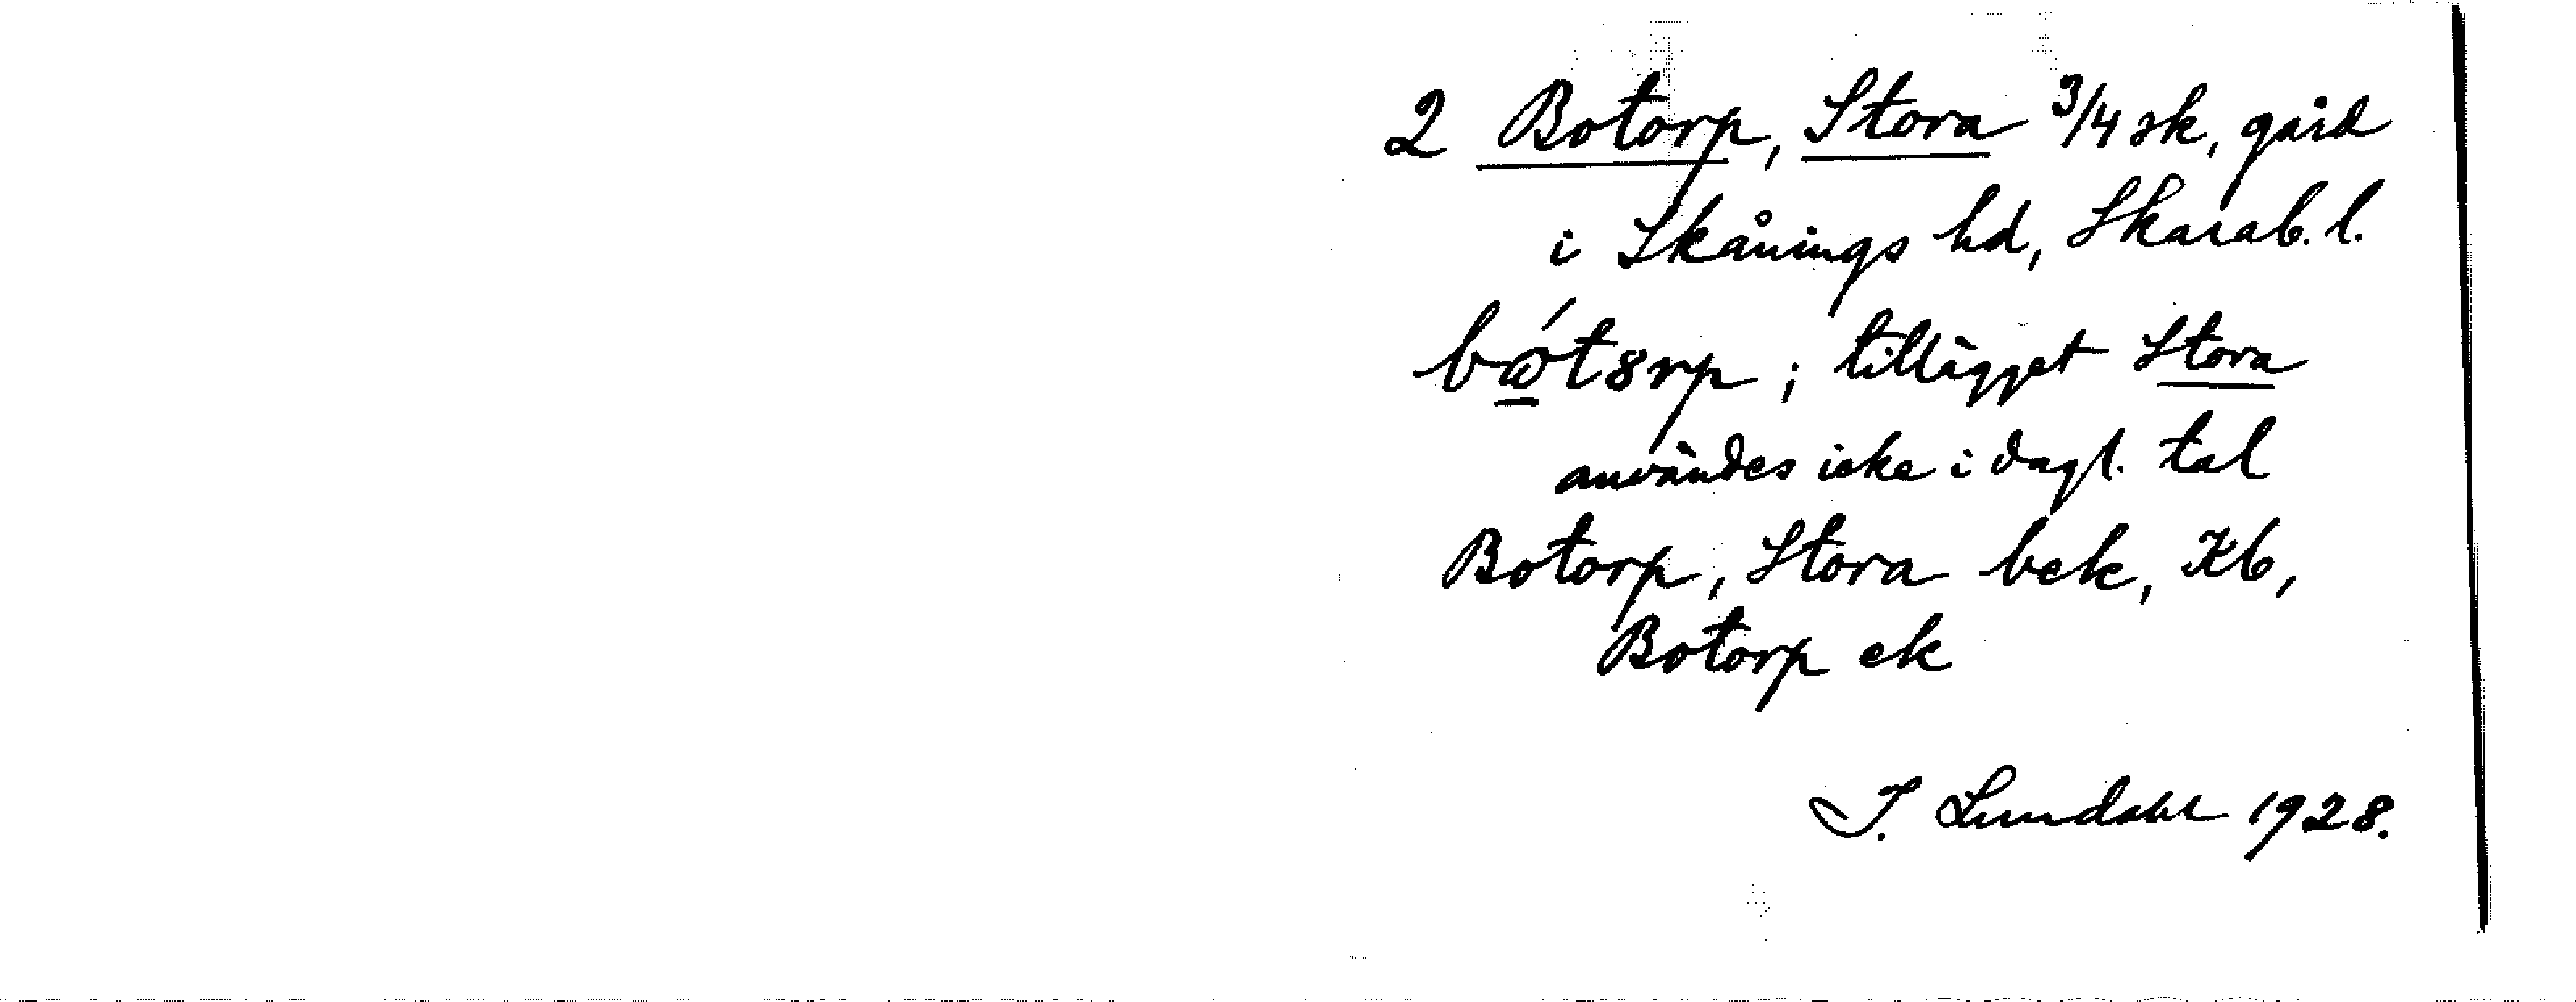 2 Botorp, Stora 3/4 sk, gård
i Skånings hd, Skarab. l.
bώt8rp; tillägget Stora
användes icke i dagl. tal
Botorp, Stora bek, Kb,
Botorp ek
I. Lundahl 1928.